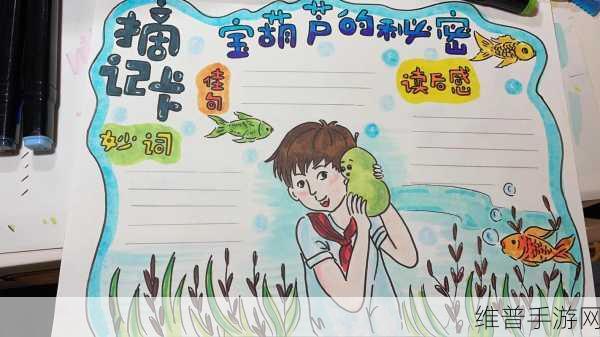 摘
记卡
宝葫芦的秘密
佳
句
读后感
妙词
维普手游网